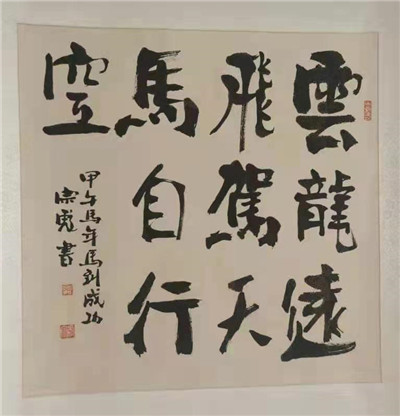 雲龍遠
飛駕天
馬自行
空
甲午馬年馬到成功
書